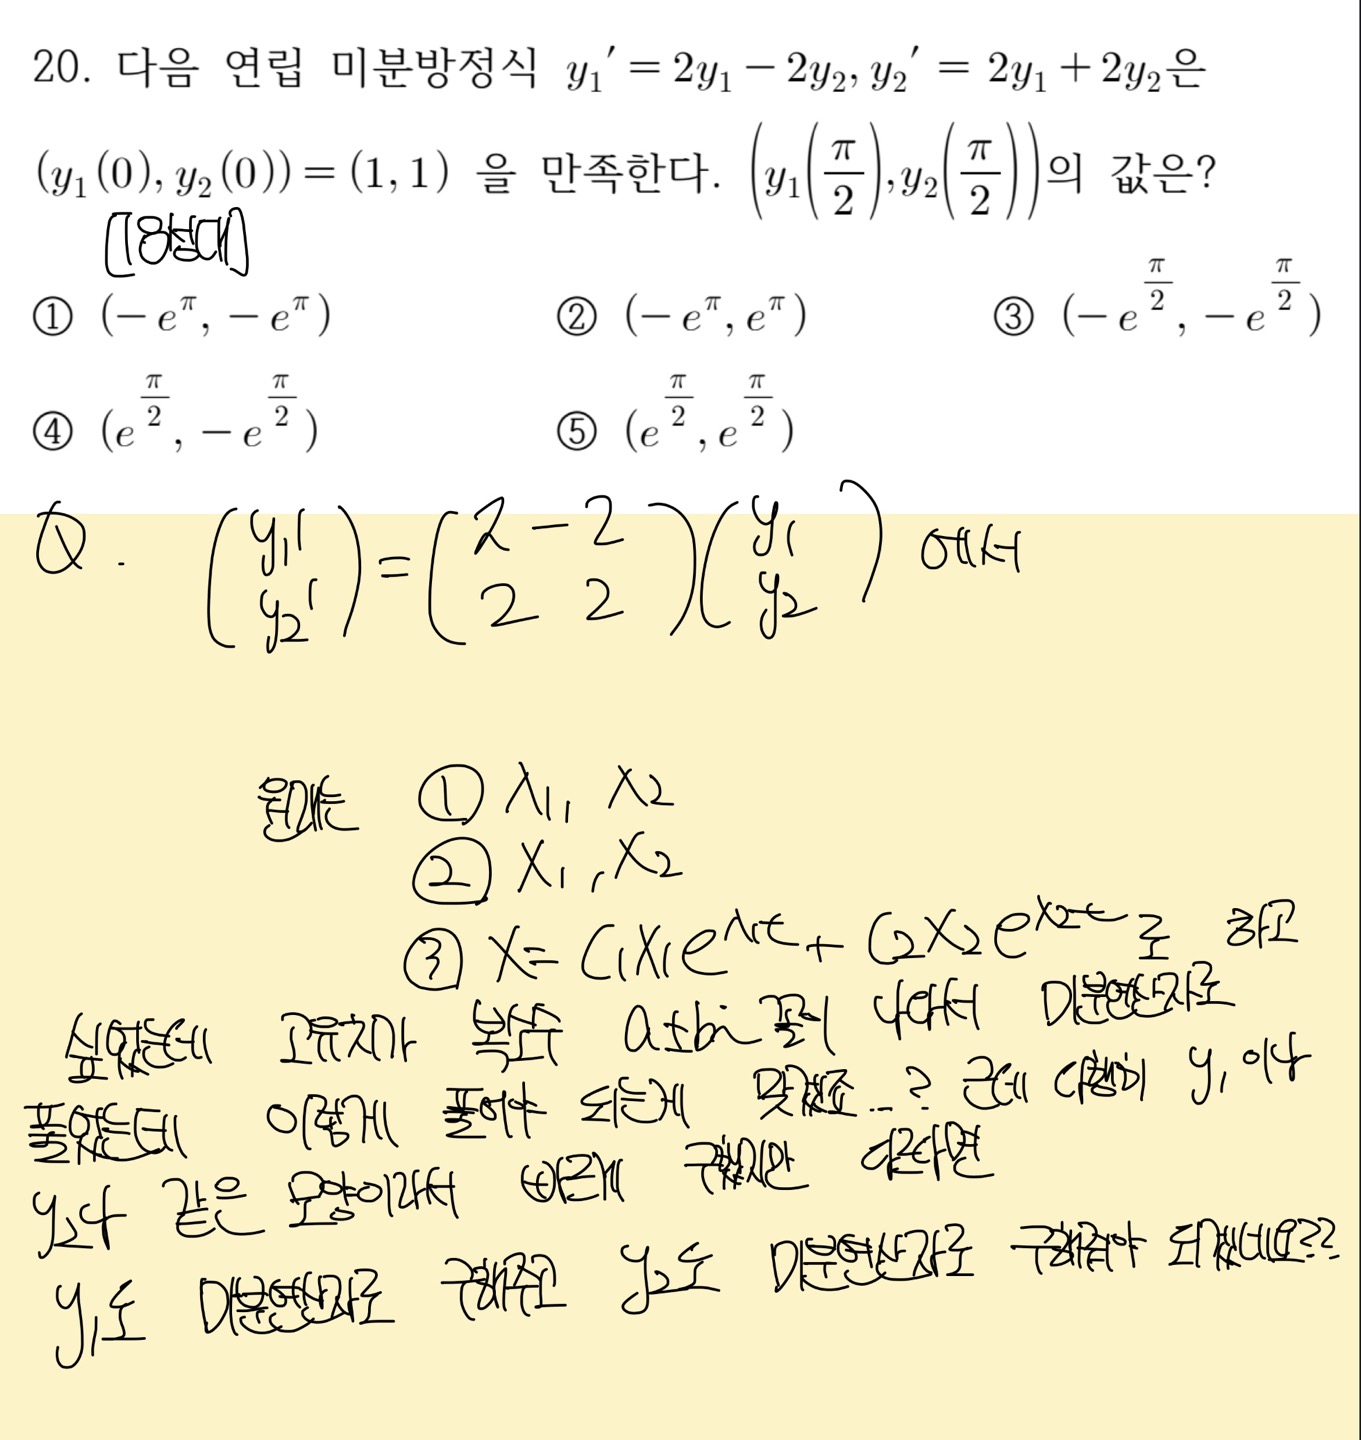 20. 다음 연립 미분방정식 y₁′ = 2y₁ − 2y₂, y₂′ = 2y₁ + 2y₂은
(y₁(0), y₂(0)) = (1, 1) 을 만족한다. (y₁(π/2), y₂(π/2))의 값은?
[18성대]
① (−e^π, −e^π) ② (−e^π, e^π) ③ (−e^(π/2), −e^(π/2))
④ (e^(π/2), −e^(π/2)) ⑤ (e^(π/2), e^(π/2))
Q. (y₁′ y₂′) = (2 −2 2 2)(y₁ y₂) 에서
원래는 ① λ₁, λ₂
② X₁, X₂
③ X = C₁X₁e^λ₁t + C₂X₂e^λ₂t 로 하고
싶었는데 고유치가 복소수 a±bi 꼴이 나와서 미분연산자로
풀었는데 이렇게 풀어야 되는게 맞겠죠...? 근데 다행히 y₁이나
y₂나 같은 모양이라서 빠르게 구했지만 다르다면
y₁도 미분연산자로 구해주고 y₂도 미분연산자로 구해줘야 되겠네요??